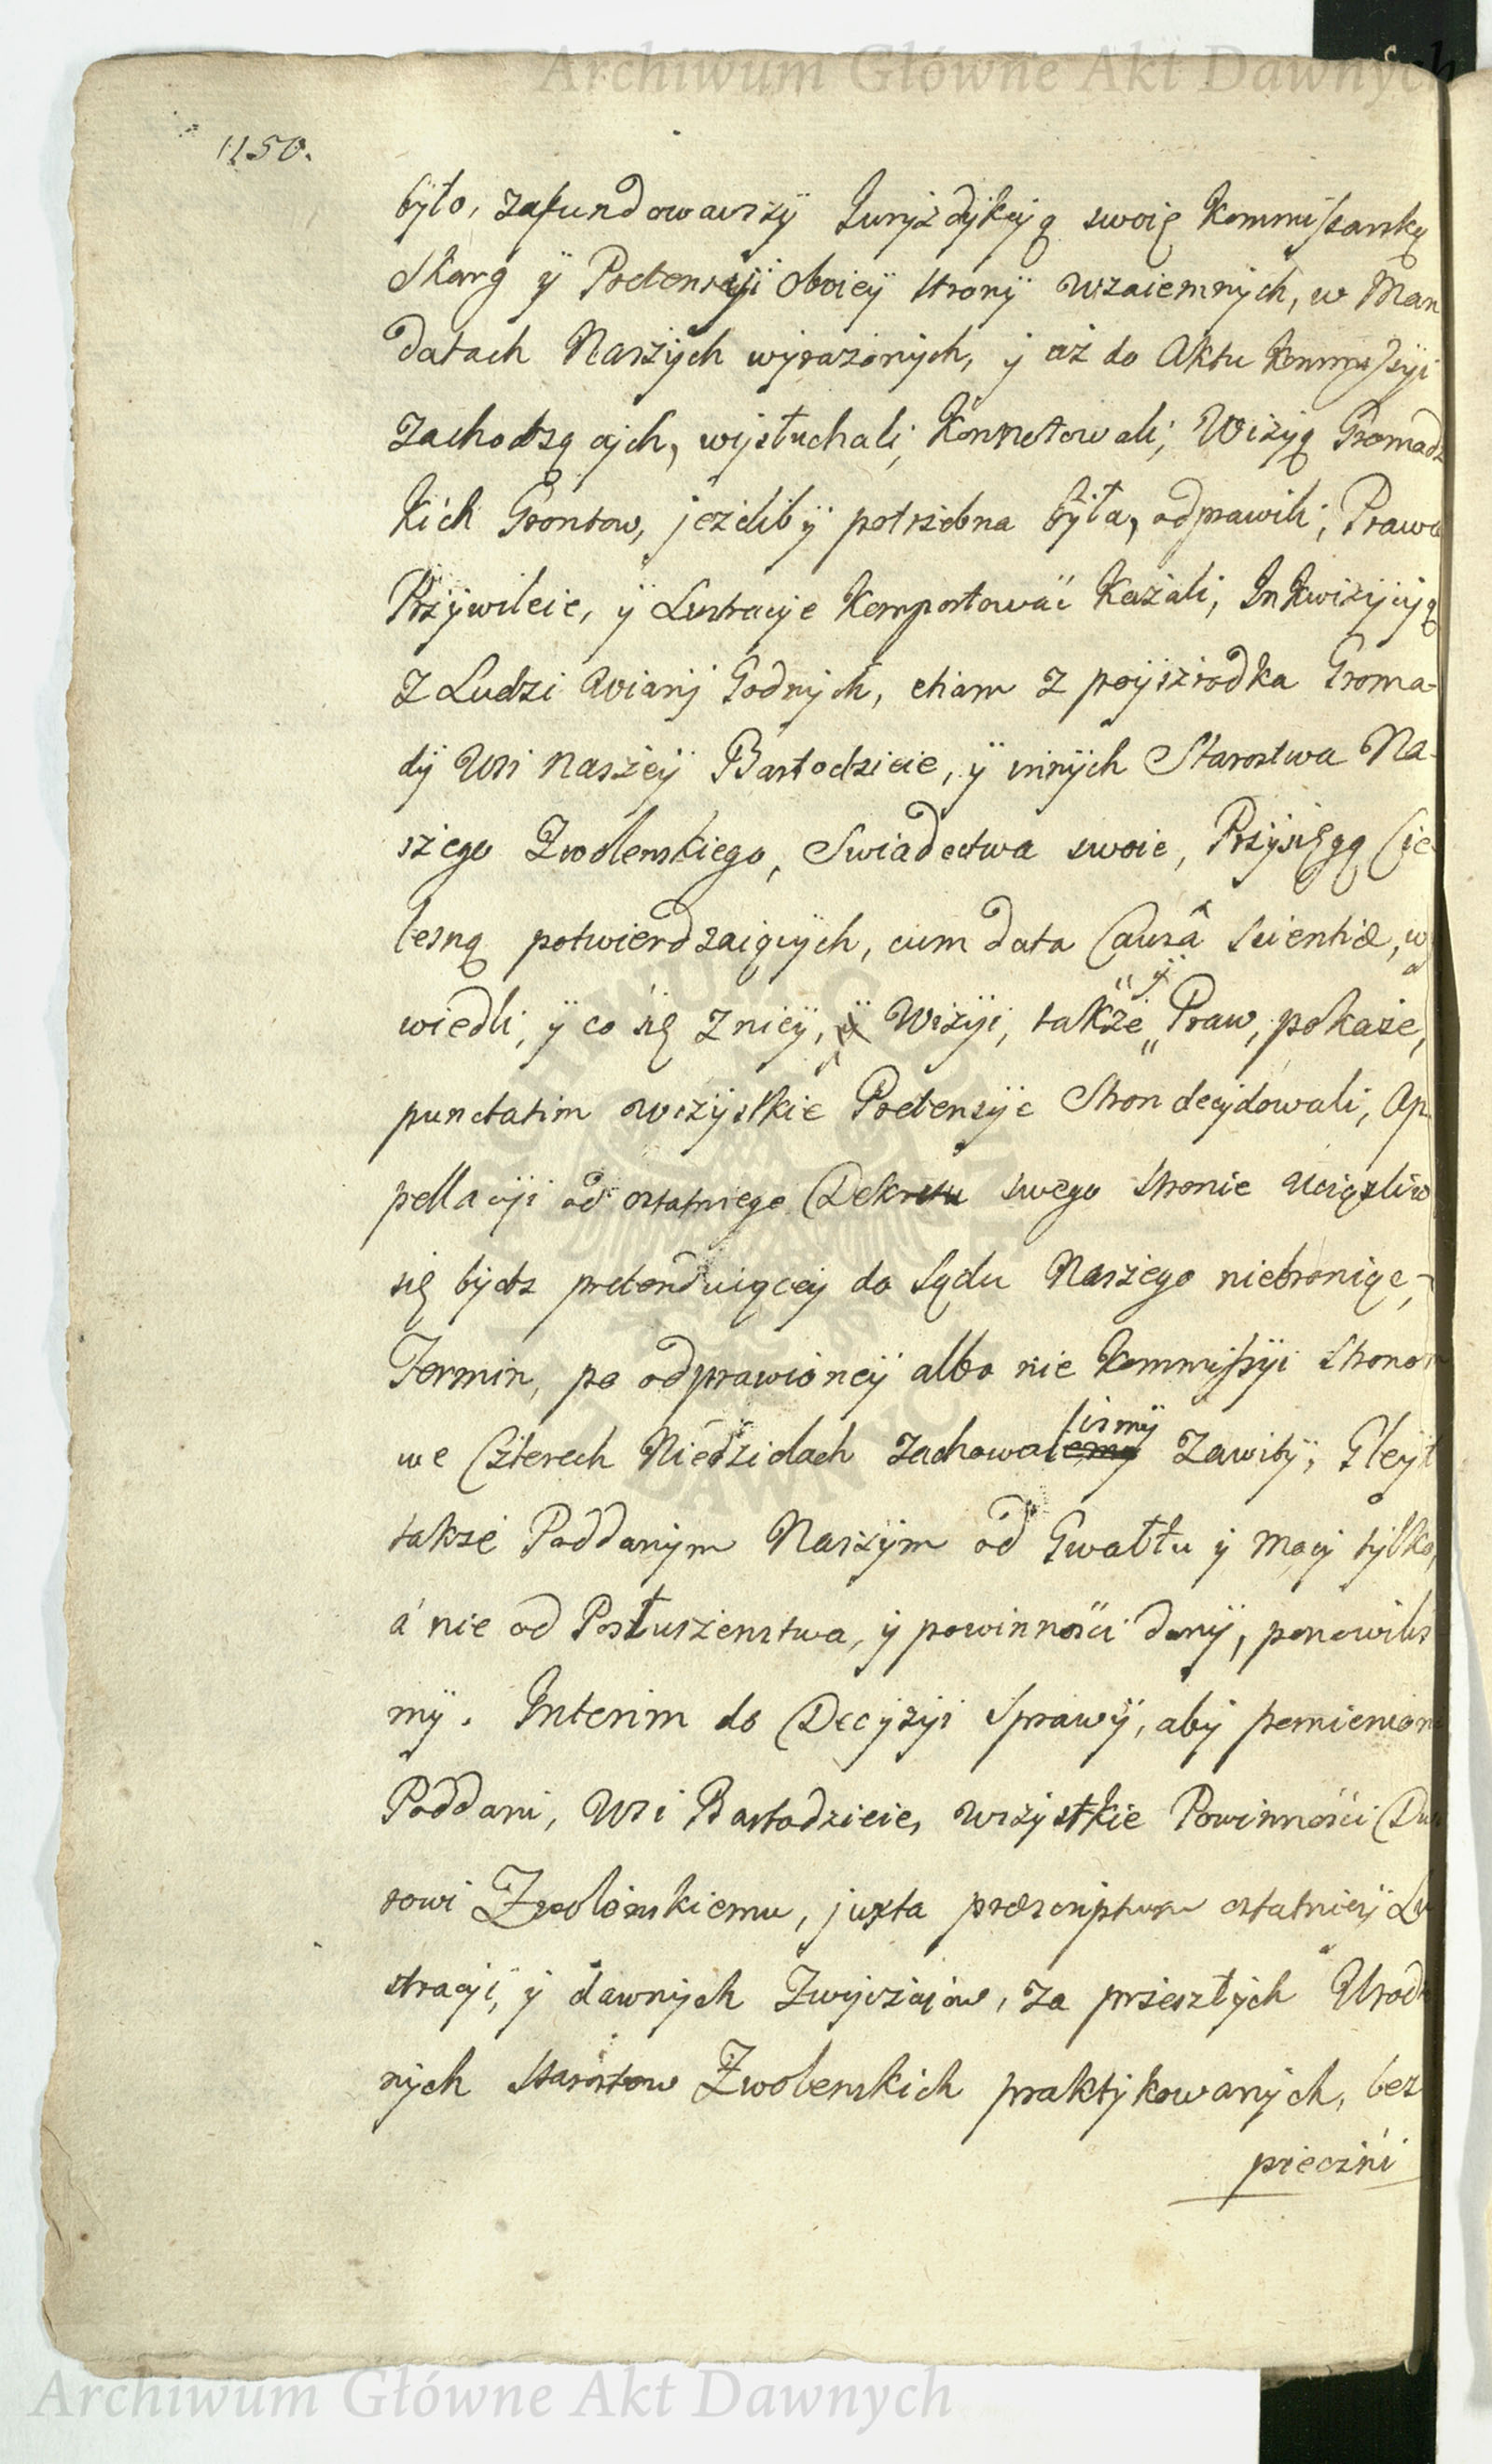 Archiwum Główne Akt Dawnych
1150.
było, zafundowawszÿ Juryzdykcyą swoię Kommissarską
Skarg ÿ Pretensyi oboieÿ stronÿ wzaiemnÿch, w Man
datach Naszÿch wyrazonych, ÿ aż do Aktu Kommissyi
zachodzących, wysłuchali, Konnotowali, Wizyą Gromadz
kich Grontow, jeżeliby potrzebna była, odprawili, Prawa
Przywileie, ÿ Lustracye komportować kazali, Inkwizycyą
z Ludzi Wiary Godnych, etiam z poyszrodka Groma-
dy Wsi Naszey Bartodzieie, ÿ innych Starostwa Na-
szego Zwolenskiego, Swiadectwa swoie, Przysięgą Cie
lesną potwierdzaiących, cum data Causâ scientiæ, wy
wiedli, ÿ co się z nieÿ, ÿ Wizyi, także ÿ Praw, pokaże,
punctatim wszystkie Pretensye Stron decydowali, Ap
pellacyi od ostatniego Dekretu swego stronie uciązliw
się bydz pretenduiącey do Sądu Naszego niebroniąc,
Termin, po odprawioneÿ albo nie Kommissyi Stronom
we Czterech Niedzielach zachowaliśmÿ Zawitÿ, Gleyt
także Poddanym Naszym od Gwałtu ÿ Mocy tylko,
á nie od Posłuszenstwa, ÿ powinności danÿ, ponowilis
mÿ. Interim do Decyzyi Sprawÿ, aby pomienion
Poddani, Wsi Bartodzieie, wszystkie Powinności Dwo
rowi Zwolenskiemu, juxta præscriptum ostatnieÿ Lu
stracyi, ÿ dawnych Zwyczaiow, za przeszłych Urodz
nych Starostow Zwolenskich praktykowanych, bez
pieczni
Archiwum Główne Akt Dawnych